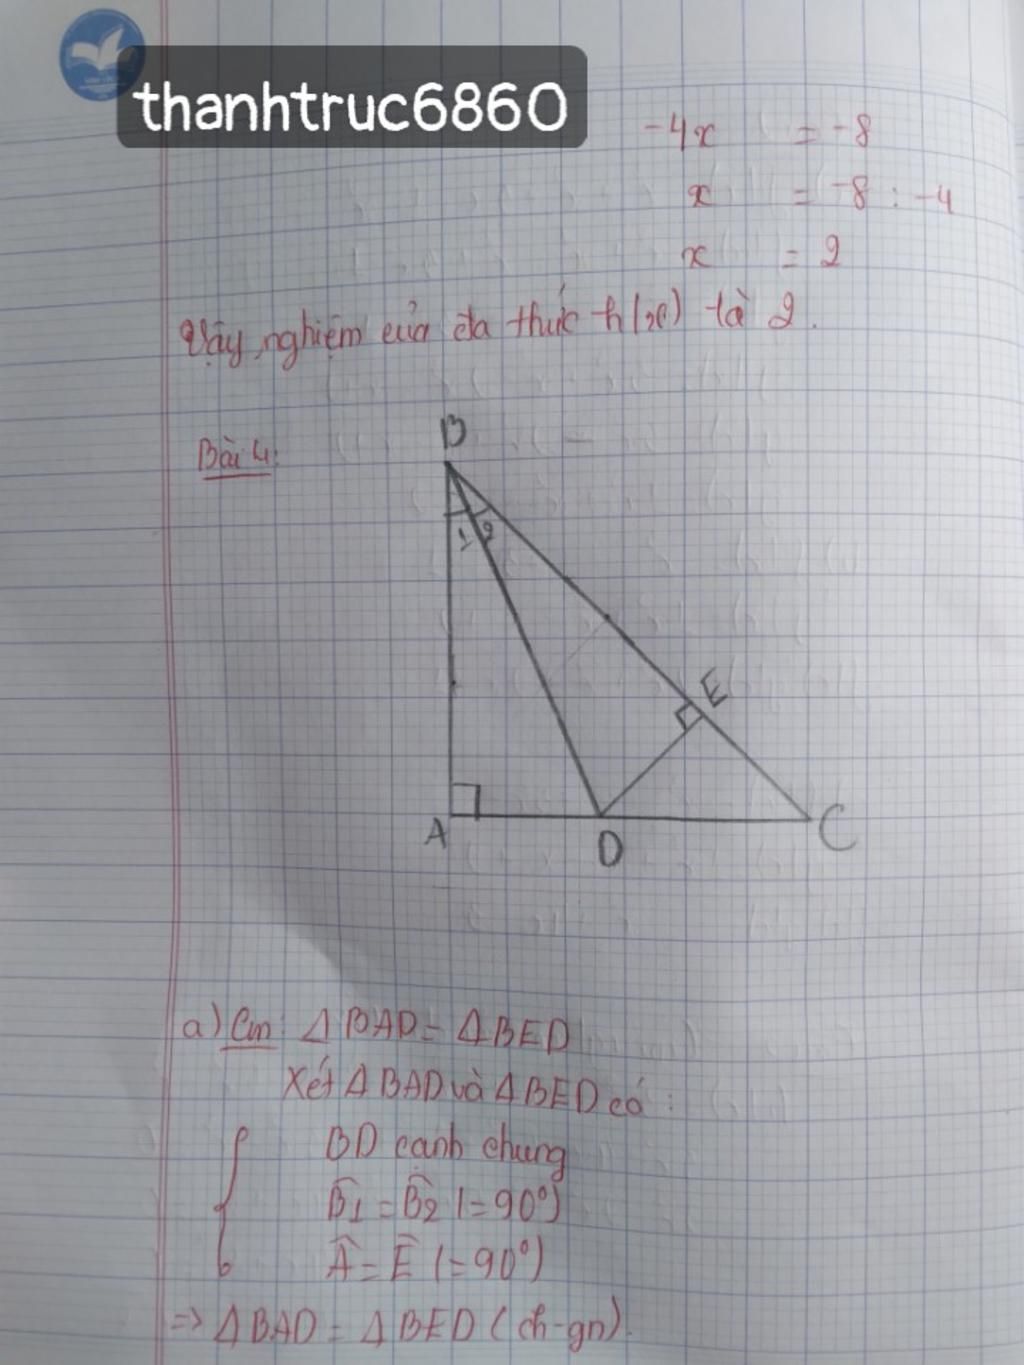 thanhtruc6860
-4x = -8
x = -8 : -4
x = 2
Vậy nghiệm của đa thức h(x) là 2.
Bài 4:
B
1 2
E
A
D
C
a) Cm: Δ BAD = Δ BED
Xét Δ BAD và Δ BED có :
BD cạnh chung
B̂1 = B̂2 (= 90°)
Â = Ê (= 90°)
=> Δ BAD = Δ BED (ch-gn).